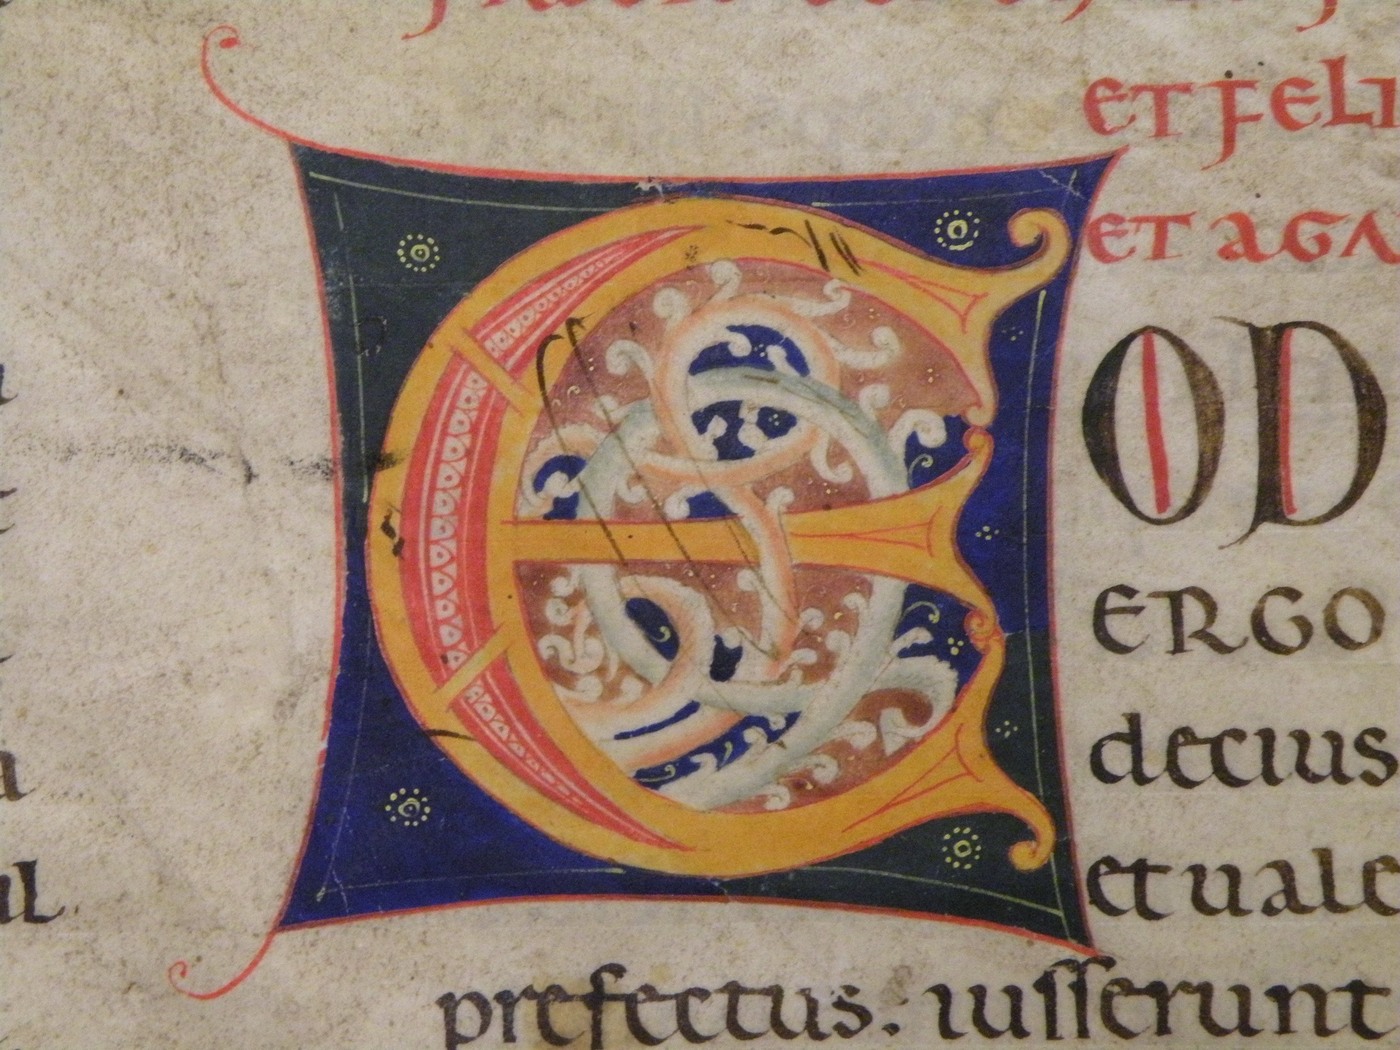 ET FELI
ET AGA
E OD
ERGO
decius
et uale
prefectus. iusserunt